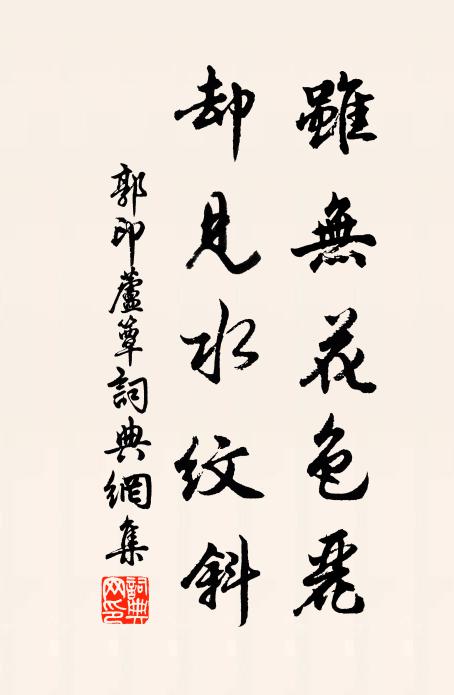 雖無花色麗
却見水紋斜
郭印蘆簟詞典網集
詞典網印